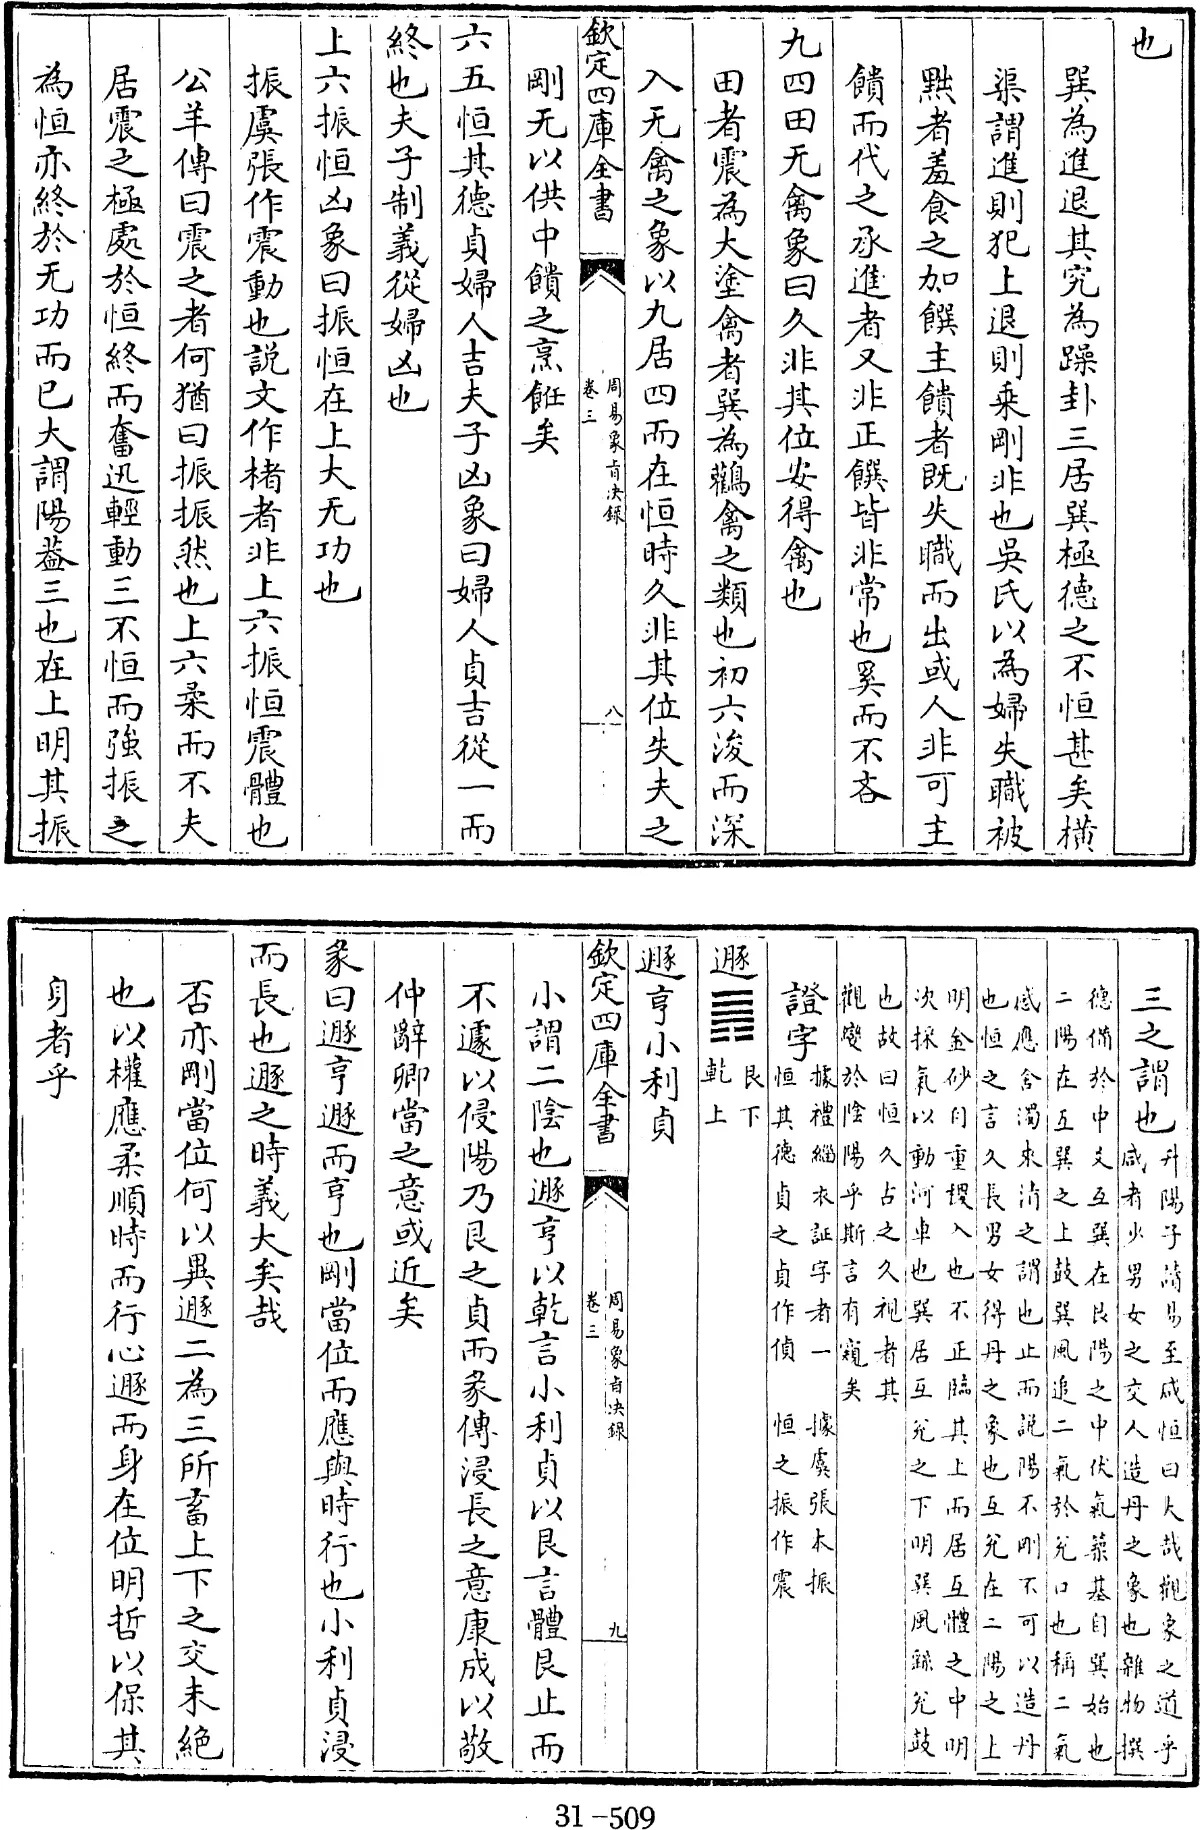 也
巽為進退其究為躁卦三居巽極德之不恒甚矣橫
渠謂進則犯上退則乗剛非也吳氏以為婦失職被
黜者羞食之加饌主饋者既失職而出或人非可主
饋而代之承進者又非正饌皆非常也奚而不吝
九四田无禽象曰久非其位安得禽也
田者震為大塗禽者巽為鸛禽之類也初六浚而深
入无禽之象以九居四而在恒時久非其位失夫之
欽定四庫全書
周易象旨决錄
卷三
八
剛无以供中饋之烹飪矣
六五恒其德貞婦人吉夫子凶象曰婦人貞吉從一而
終也夫子制義從婦凶也
上六振恒凶象曰振恒在上大无功也
振虞張作震動也説文作楮者非上六振恒震體也
公羊傳曰震之者何猶曰振振然也上六柔而不夫
居震之極處於恒終而奮迅輕動三不恒而強振之
為恒亦終於无功而已大謂陽葢三也在上明其振
三之謂也
升陽子清易至咸恒曰大哉觀象之道乎
咸者少男女之交人造丹之象也雜物撰
德備於中爻互巽在艮陽之中伏氣築基自巽始也
二陽在互巽之上鼓巽風追二氣於兌口也稱二氣
感應舍濁來清之謂也止而説陽不剛不可以造丹
也恒之言久長男女得丹之象也互兌在二陽之上
明金砂自重稷入也不正臨其上而居互體之中明
次採氣以動河車也巽居互兌之下明巽風繇兌鼓
也故曰恒久占之久視者其
觀變於陰陽乎斯言有窺矣
證字
據禮緇衣証字者一
恒其德貞之貞作偵
據虞張本振
恒之振作震
遯
艮下
乾上
遯亨小利貞
欽定四庫全書
周易象旨决錄
卷三
九
小謂二陰也遯亨以乾言小利貞以艮言體艮止而
不遽以侵陽乃艮之貞而彖傳浸長之意康成以敬
仲辭卿當之意或近矣
彖曰遯亨遯而亨也剛當位而應與時行也小利貞浸
而長也遯之時義大矣哉
否亦剛當位何以異遯二為三所畜上下之交未絕
也以權應柔順時而行心遯而身在位明哲以保其
身者乎
31-509